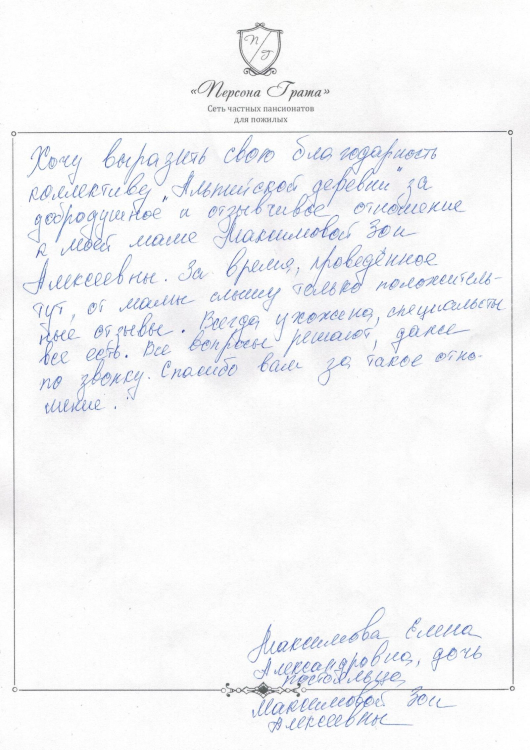 П Г
«Персона Грата»
Сеть частных пансионатов
для пожилых
Хочу выразить свою благодарность
коллективу "Альпийской деревни" за
добродушное и отзывчивое отношение
к моей маме Максимовой Зои
Алексеевны. За время, проведённое
тут, от мамы слышу только положитель-
ные отзывы. Всегда ухожена, специалисты
все есть. Все вопросы решают, даже
по звонку. Спасибо вам за такое отно-
шение.
Максимова Елена
Александровна, дочь
постояльца
Максимовой Зои
Алексеевны